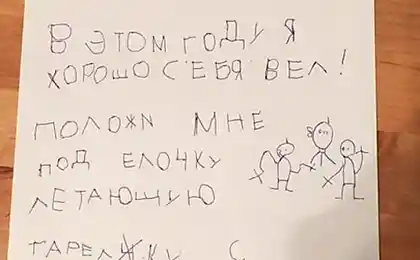 В ЭТОМ ГОДУ Я
ХОРОШО СЕБЯ ВЕЛ!
ПОЛОЖИ МНЕ
ПОД ЕЛОЧКУ
ЛЕТАЮЩУЮ
ТАРЕЛЖКУ С